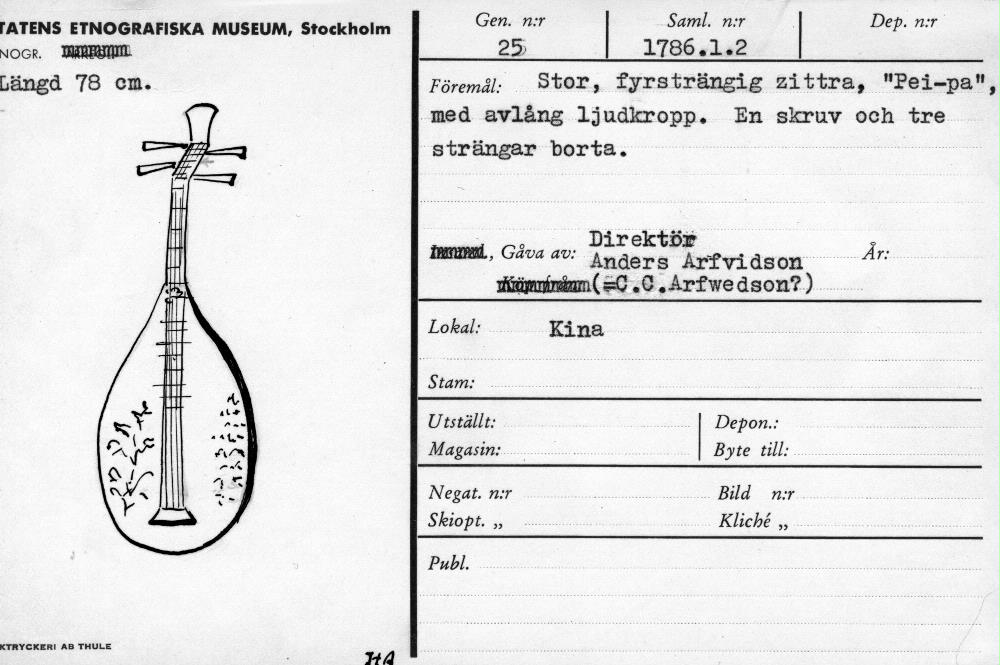 TATENS ETNOGRAFISKA MUSEUM, Stockholm
NOGR.
Längd 78 cm.
KTRYCKERI AB THULE
HA
Gen. n:r
25
Saml. n:r
1786.1.2
Dep. n:r
Föremål: Stor, fyrsträngig zittra, "Pei-pa",
med avlång ljudkropp. En skruv och tre
strängar borta.
Gåva av: Direktör
Anders Arfvidson
(=C.C.Arfwedson?)
År:
Lokal: Kina
Stam:
Utställt:
Depon.:
Magasin:
Byte till:
Negat. n:r
Bild n:r
Skiopt. „
Kliché „
Publ.